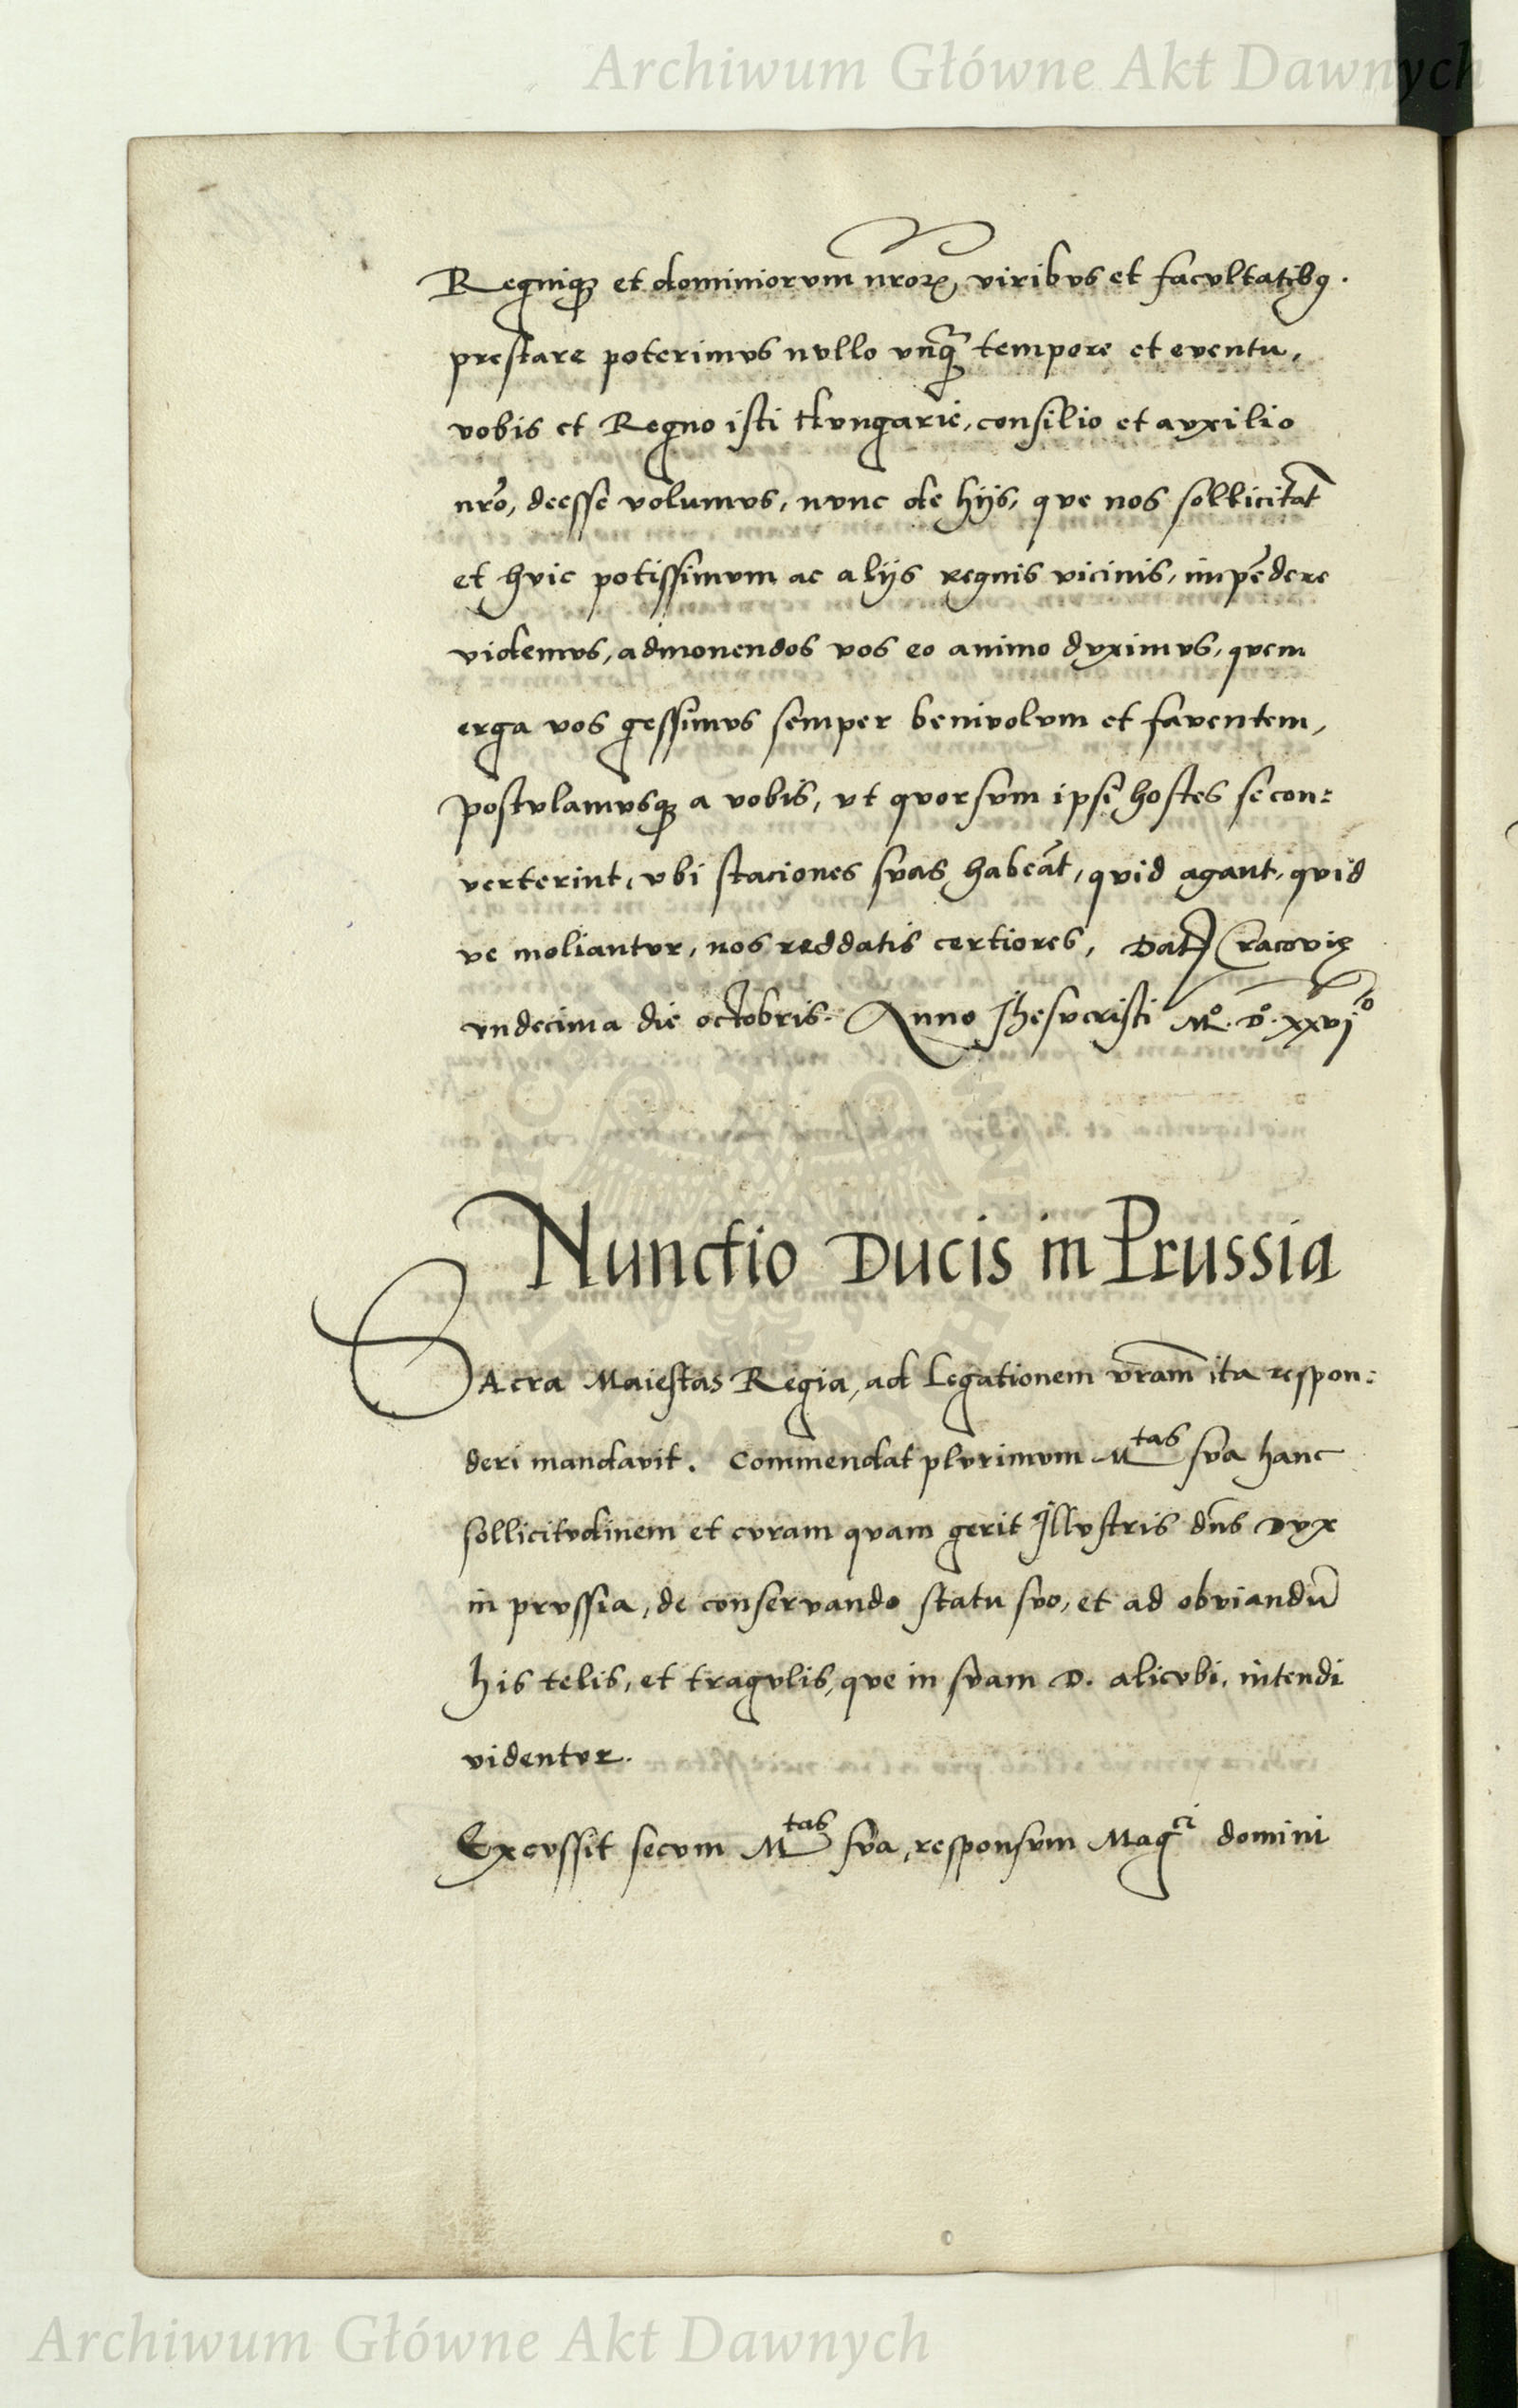 Archiwum Główne Akt Dawnych
Regniqꝫ et dominiorvm nr̃oꝝ, viribvs et facvltatibꝯ.
prestare poterimvs nvllo vnq̃ tempore et eventu,
vobis et Regno isti Hvngarie, consilio et avxilio
nr̃o, deesse volumvs, nvnc de hijs, qve nos sollicitãt
et hvic potissimvm ac alijs regnis vicinis, impẽdere
videmvs, admonendos vos eo animo dvximvs, qvem
erga vos gessimvs semper benivolvm et faventem,
postvlamvsqꝫ a vobis, vt qvorsvm ipsi hostes se con:
verterint, vbi staciones svas habeãt, qvid agant, qvid
ve moliantvr, nos reddatis certiores, Dat̃ Cracovię
vndecima die octobris. Anno Jhesvcristi Mº. Dº. xxvjº
Nunctio Ducis in Prussia
SAcra Maiestas Regia, ad Legationem vr̃am ita respon:
deri mandavit. Commendat plvrimvm Mtas sva hanc
sollicitvdinem et cvram qvam gerit Illvstris dñs Dvx
in prvssia, de conservando statu svo, et ad obviandũ
his telis, et tragvlis, qve in svam D. alicvbi, intendi
videntvr.
Excvssit secvm Mtas sva, responsvm Magci domini
Archiwum Główne Akt Dawnych